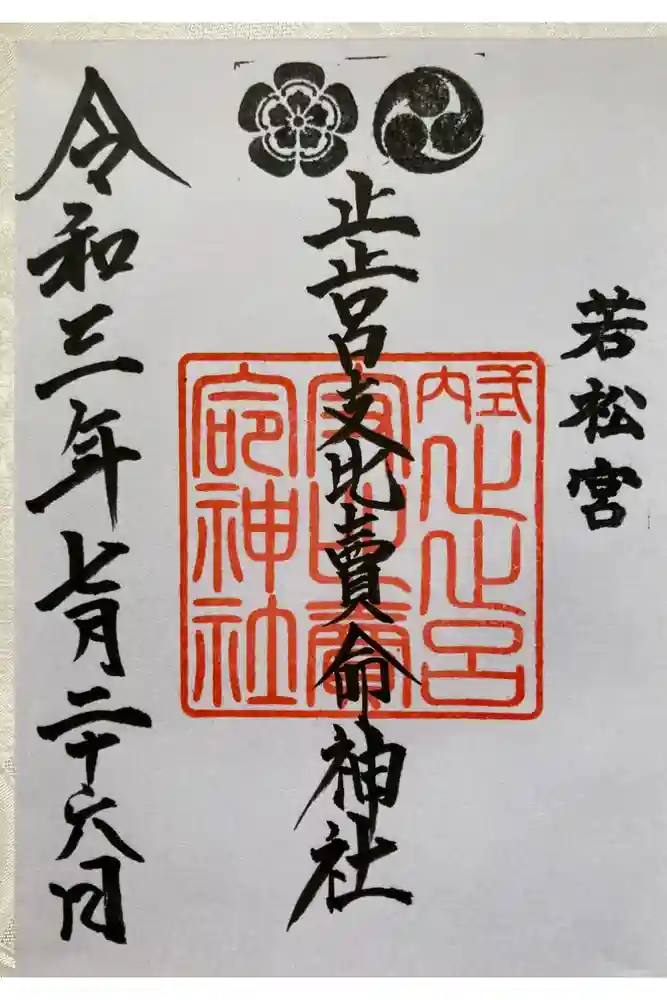 若松宮
止止呂支比賣命神社
式内
止止呂
命神社
令和三年七月二十六日